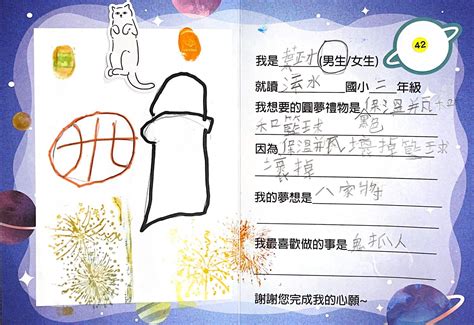 42
我是 (男生/女生)
就讀 水 國小 二 年級
我想要的圓夢禮物是 保溫瓶和
籃球
因為 保溫瓶壞掉 球
壞掉
我的夢想是 八家將
我最喜歡做的事是 鬼抓人
謝謝您完成我的心願~